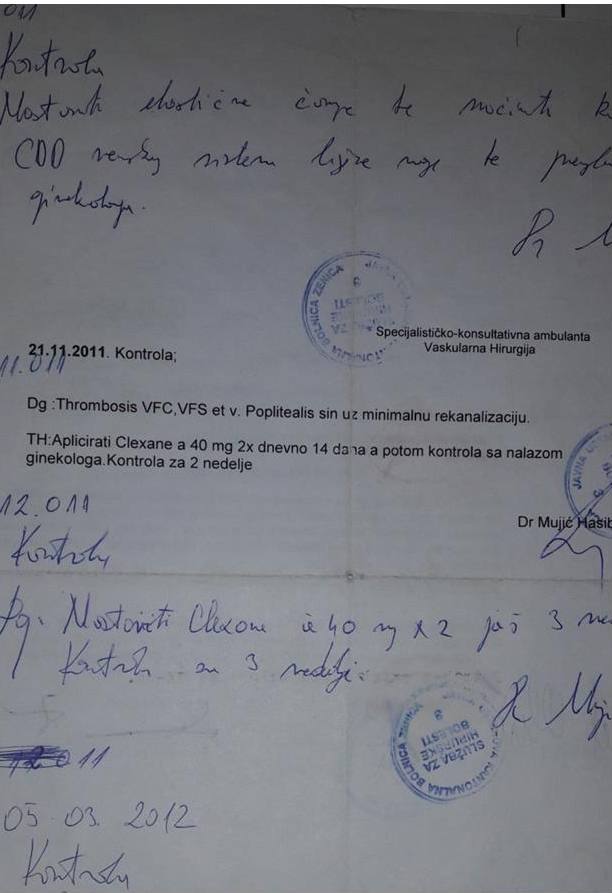 011
Kontrola
Nastaviti elastične čarape te
CDD sistem lijeve noge te
ginekologa.
JAVNA
KANTONALNA BOLNICA ZENICA
Specijalističko-konsultativna ambulanta
Vaskularna Hirurgija
21.11.2011. Kontrola;
11.011
Dg :Thrombosis VFC,VFS et v. Poplitealis sin uz minimalnu rekanalizaciju.
TH:Aplicirati Clexane a 40 mg 2x dnevno 14 dana a potom kontrola sa nalazom
ginekologa.Kontrola za 2 nedelje
JAVNA
12.011
Dr Mujić Hasib
Kontrola
Nastaviti Clexane à 40 mg x 2 još 3
Kontrola za 3 nedelje.
KANTONALNA BOLNICA ZENICA
SLUŽBA ZA
HIRURŠKE
BOLESTI
8
011
05 03. 2012
Kontrola